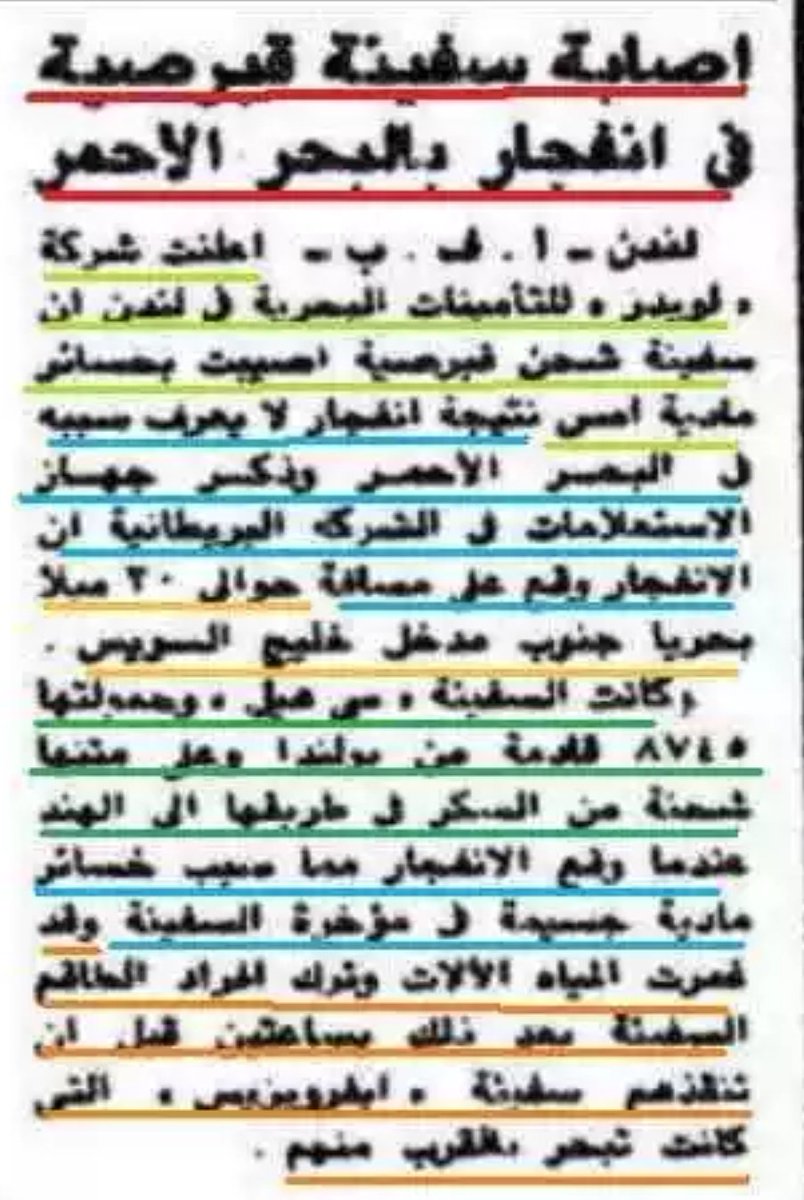 اصابة سفينة قبرصية
فى انفجار بالبحر الأحمر
لندن - أ . ف . ب - اعلنت شركة
« لويدز » للتأمينات البحرية فى لندن ان
سفينة شحن قبرصية اصيبت بخسائر
مادية امس نتيجة انفجار لا يعرف سببه
فى البحر الأحمر وذكر جهاز
الاستعلامات فى الشركه البريطانية ان
الانفجار وقع على مسافة حوالى ٣٠ ميلا
بحريا جنوب مدخل خليج السويس .
وكانت السفينة « سى هيل » وحمولتها
٨٧٤٥ قادمة من بولندا وعلى متنها
شحنة من السكر فى طريقها الى الهند
عندما وقع الانفجار مما سبب خسائر
مادية جسيمة فى مؤخرة السفينة وقد
غمرت المياه الآلات وترك افراد الطاقم
السفينة بعد ذلك بساعتين قبل ان
تنقذهم سفينة « ايفروبزيس » التى
كانت تبحر بالقرب منهم .